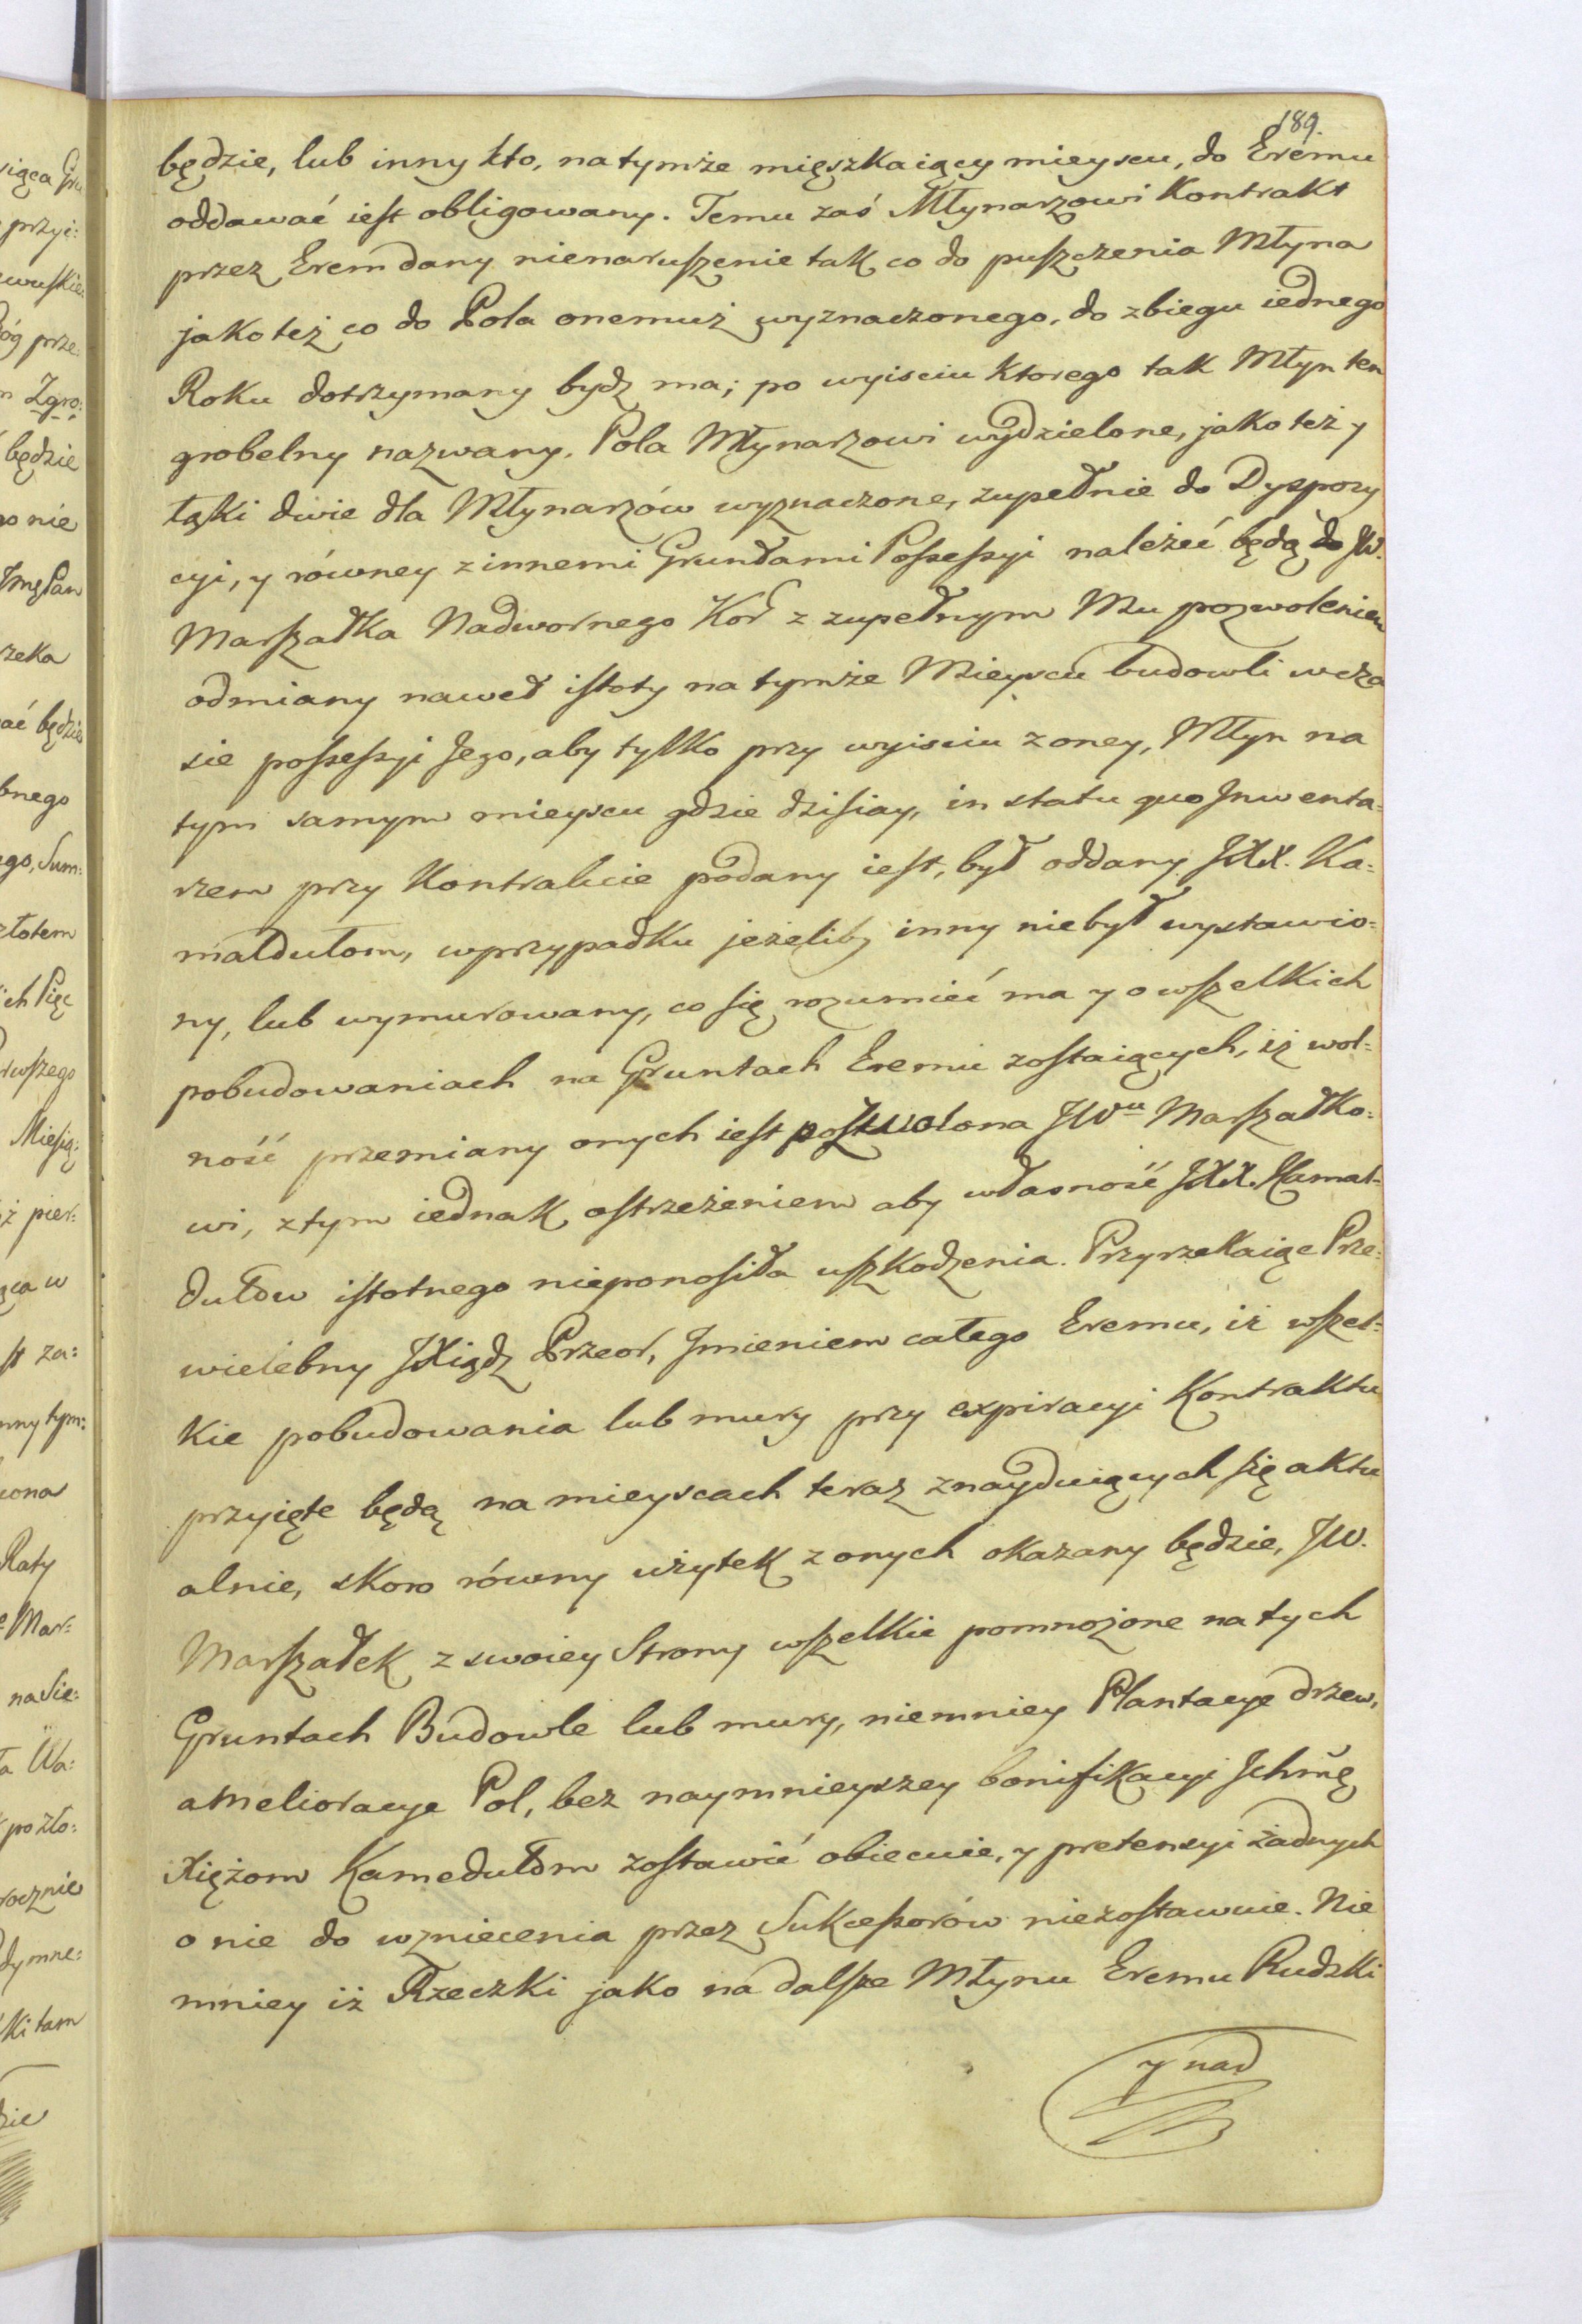 189.
będzie, lub inny kto, na tymże mięszkaiący mieyscu, do Eremu
oddawać iest obligowany. Temu zaś Młynarzowi Kontrakt
przez Erem dany nienaruszenie tak co do puszczenia Młyna
jako też co do Pola onemuż wyznaczonego, do zbiegu iednego
Roku dotrzymany bydz ma; po wyisciu ktorego tak Młyn ten
grobelny nazwany. Pola Młynarzowi wydzielone, jako też y
łąki dwie dla Młynarzów wyznaczone, zupełnie do Dyspozy
cyi, y równey z innemi Gruntami Possessyi należeć będą do JW.
Marszałka Nadwornego Kor z zupełnym Mu pozwoleniem
odmiany nawet istoty na tymże Mieyscu budowli wcza
sie possessyi Jego, aby tylko przy wyisciu z oney, Młyn na
tym samym mieyscu gdzie dzisiay, in statu quo Inwenta=
rzem przy Kontrakcie podany iest, był oddany JXX. Ka=
maldułom, wprzypadku jeżeliby inny niebył wystawio=
ny, lub wymurowany, co się rozumieć ma y o wszelkich
pobudowaniach na Gruntach Eremu zostaiących, iż wol=
ność przemiany onych iest pozwolona JWu Marszałko=
wi, z tym iednak ostrzeżeniem aby własność JXX. Kamal=
dułów istotnego nieponosiła uszkodzenia. Przyrzekaiąc Prze=
wielebny JXiądz Przeor, Imieniem całego Eremu, iż wszel=
kie pobudowania lub mury przy expiracyi Kontraktu
przyięte będą na mieyscach teraz znayduiących się aktu
alnie, skoro równy użytek z onych okazany będzie, JW.
Marszałek z swoiey Strony wszelkie pomnożone na tych
Gruntach Budowle lub mury, niemniey Plantacye drzew,
amelioracye Pol, bez naymnieyszey bonifikacyi Ichmę
Xiężom Kamedułom zostawić obiecuie, y pretensyi żadnych
o nie do wzniecenia przez Sukcessorów niezostawuie. Nie
mniey iż Rzeczki jako na dalsze Młynu Eremu Rudzki
y nad